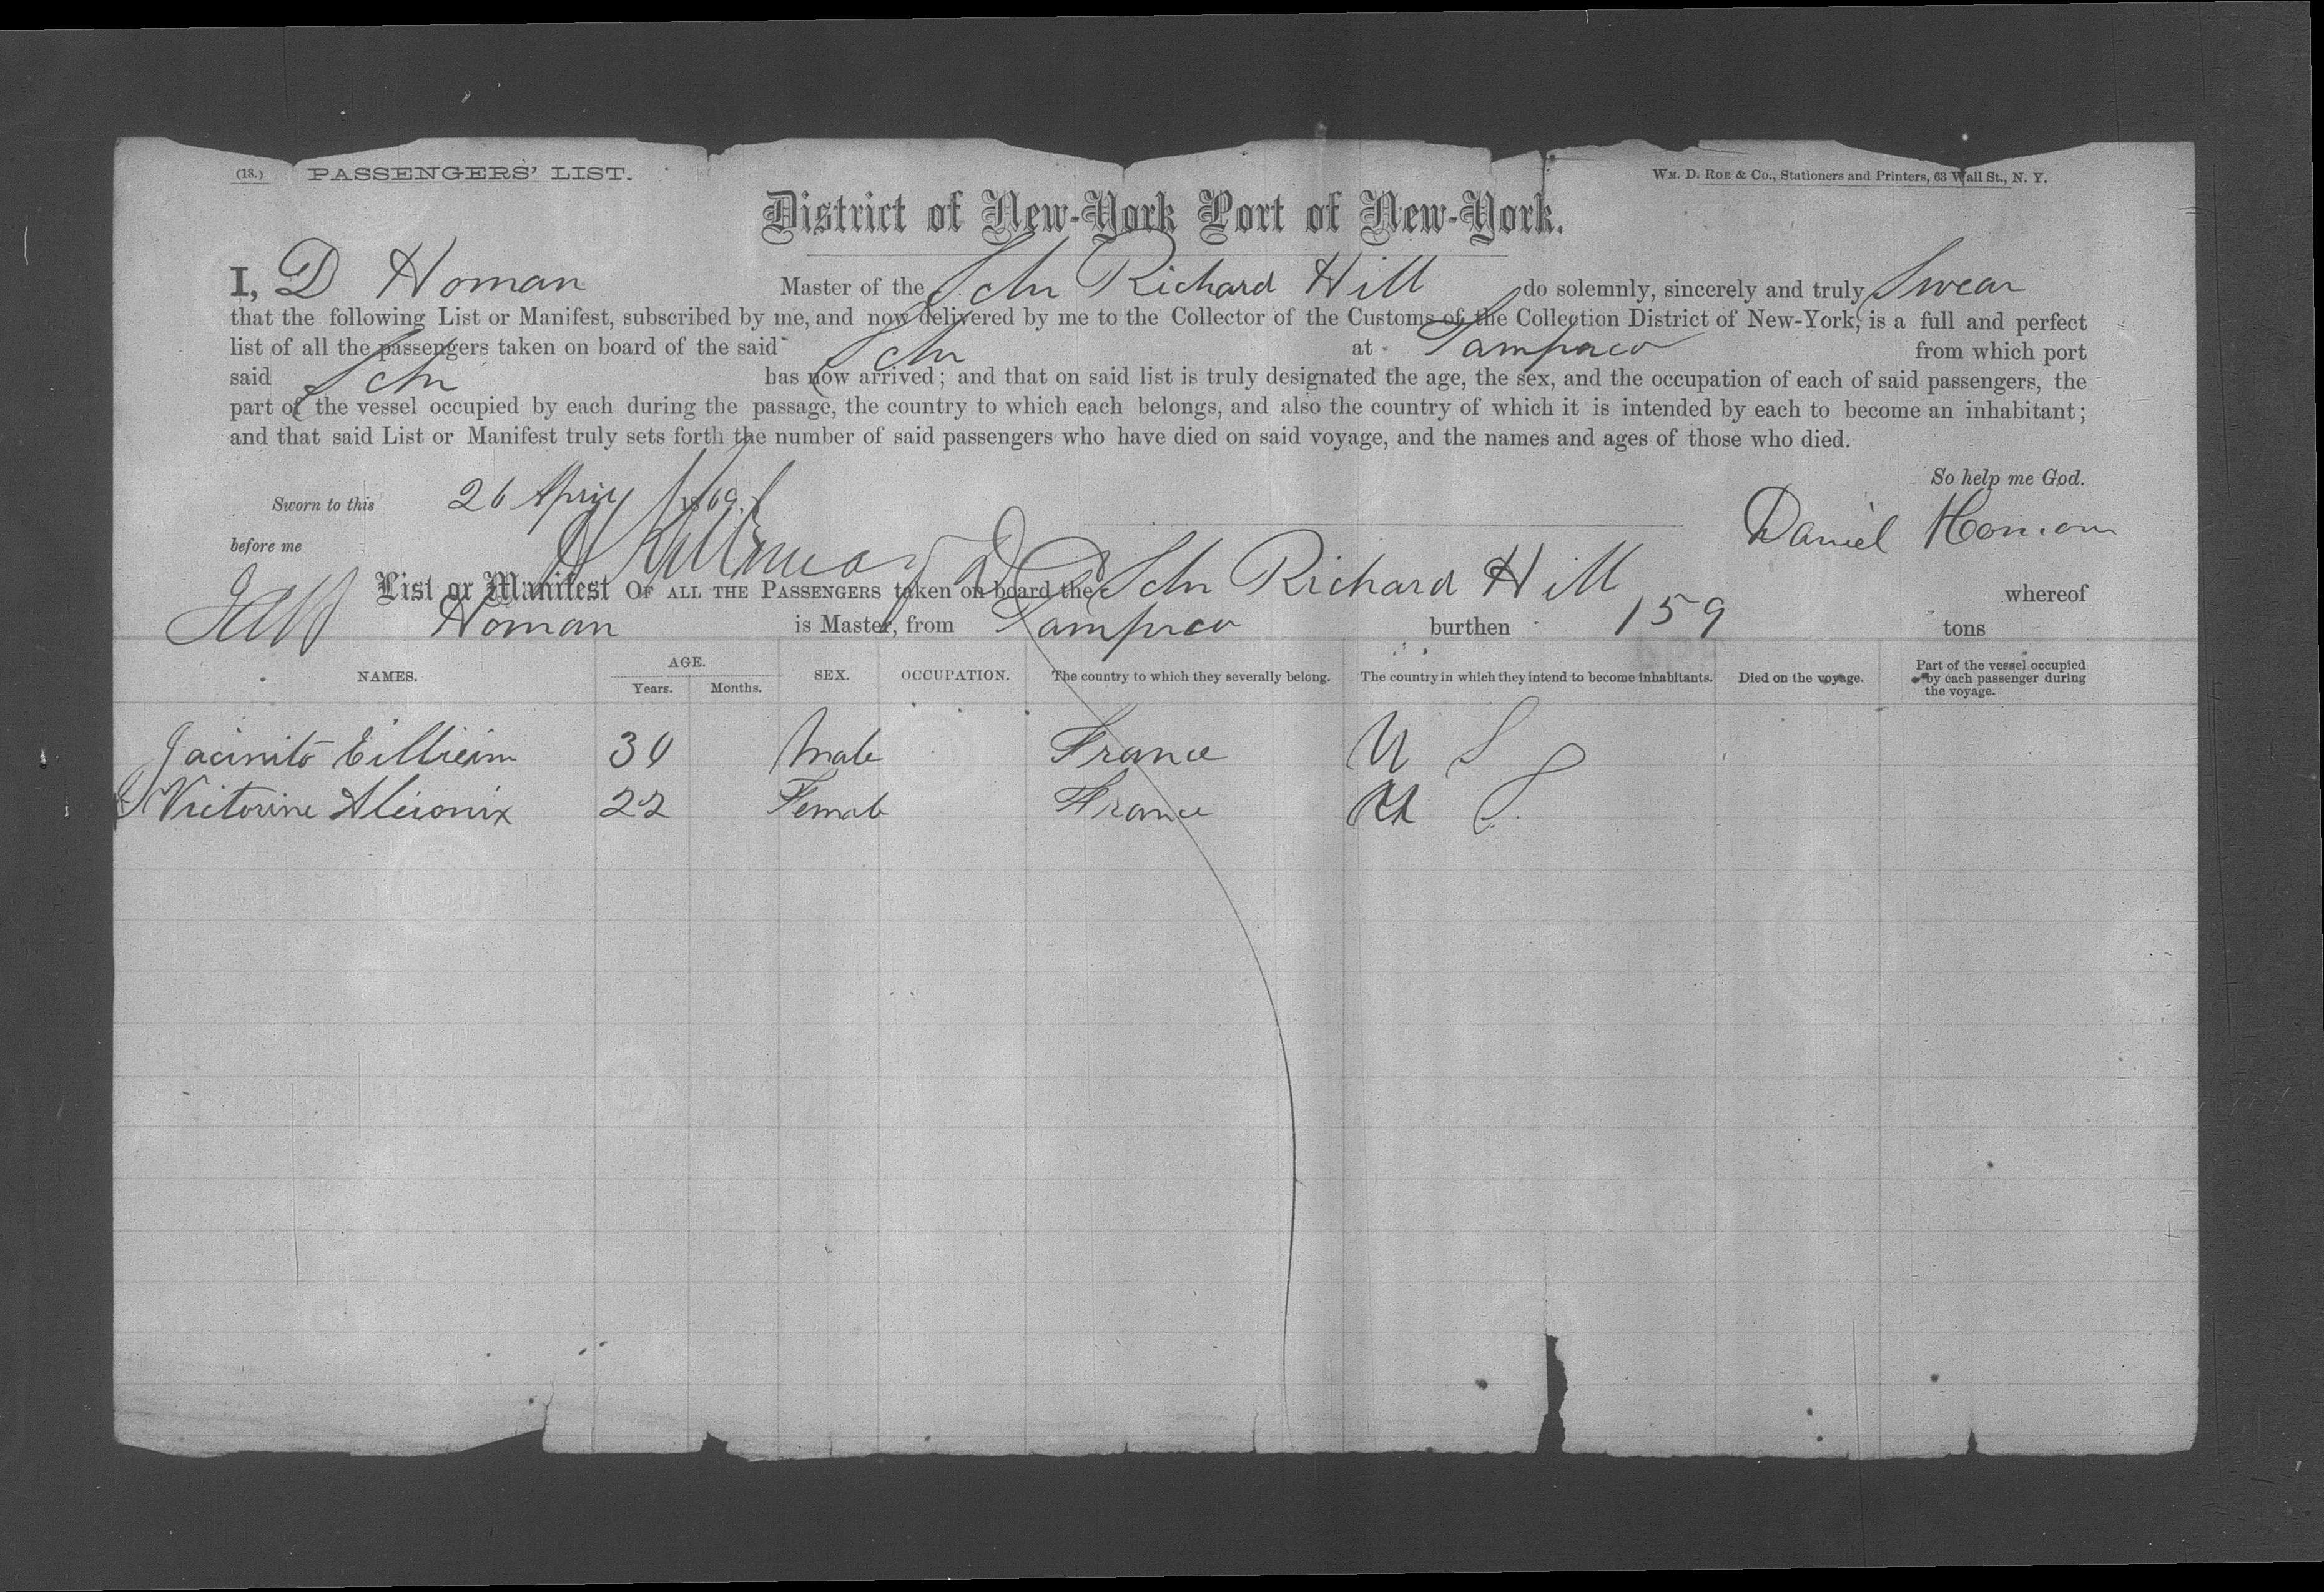 (18.) PASSENGERS' LIST.
WM. D. ROE & CO., Stationers and Printers, 63 Wall St., N. Y.
District of New-York Port of New-York.
I, D Homan Master of the Schr Richard Hill do solemnly, sincerely and truly Swear
that the following List or Manifest, subscribed by me, and now delivered by me to the Collector of the Customs of the Collection District of New-York, is a full and perfect
list of all the passengers taken on board of the said Schr at Tampico from which port
said Schr has now arrived; and that on said list is truly designated the age, the sex, and the occupation of each of said passengers, the
part of the vessel occupied by each during the passage, the country to which each belongs, and also the country of which it is intended by each to become an inhabitant;
and that said List or Manifest truly sets forth the number of said passengers who have died on said voyage, and the names and ages of those who died.
So help me God.
Sworn to this 26 April 1869
Daniel Homan
before me
List or Manifest OF ALL THE PASSENGERS taken on board the Schr Richard Hill whereof
Homan is Master, from Tampico burthen 159 tons
NAMES. AGE. Years. Months. SEX. OCCUPATION. The country to which they severally belong. The country in which they intend to become inhabitants. Died on the voyage. Part of the vessel occupied by each passenger during the voyage.
Jacinito 30 Male France U S
Victorine 22 Female France U S